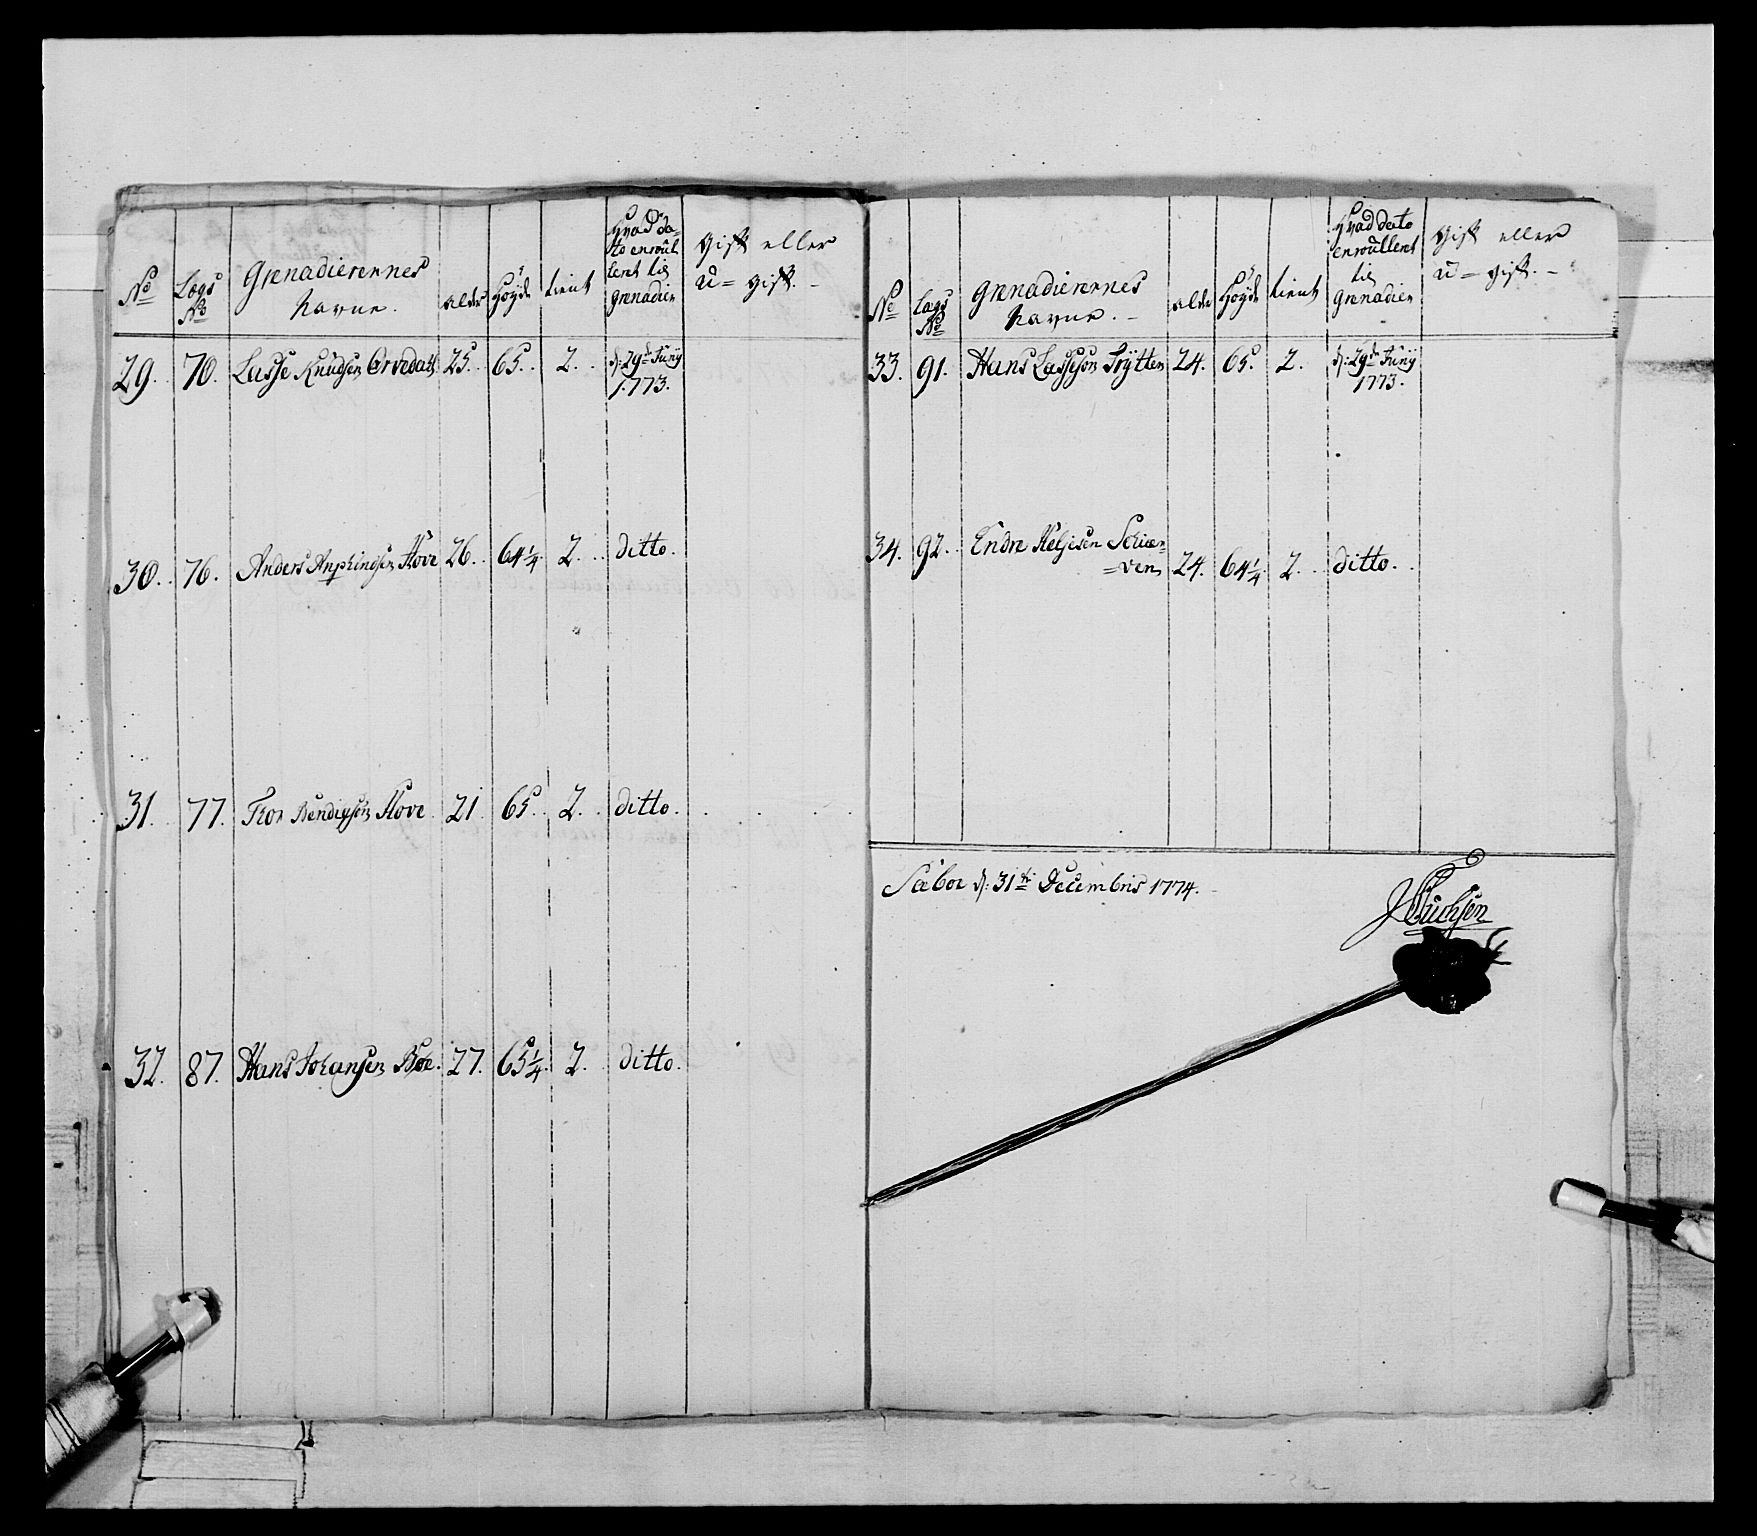 No
Lægs
No
Grenadierernes
Navne.
alder
Höyde
tient
Hvad da-
to enroul
lert til
Grenadier
Gift eller
U=gift. -
29. 70. Lasse Knudsen Orvedahl 25. 65. 2. d: 29de Juny
1773.
30. 76. Anders Hove 26. 64 1/4 2. ditto.
31. 77. Thor Bendixsen Hove 21 65. 2. ditto.
32. 87. Hans Johansen Bøe. 27. 65 1/4 2. ditto.
No
Lægs
No
Grenadierernes
Navne. -
alder
Höyde
tient
Hvad dato
enroullert
til
Grenadier
Gift eller
U=gift. -
33. 91. Hans Lassesen Trytten 24. 65. 2. d: 29de Juny
1773.
34. 92. Endre Helgesen Schier-
=ven 24. 64 1/4 2. ditto.
Sæboe d: 31te Decembris 1774.